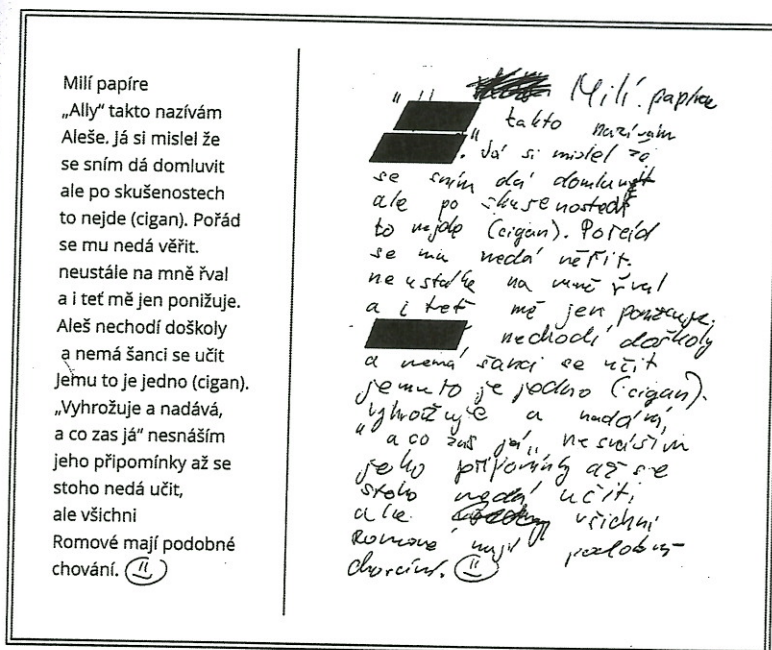 Milí papíre
„Ally" takto nazívám
Aleše. já si mislel že
se sním dá domluvit
ale po skušenostech
to nejde (cigan). Pořád
se mu nedá věřit.
neustále na mně řval
a i teť mě jen ponižuje.
Aleš nechodí doškoly
a nemá šanci se učit
Jemu to je jedno (cigan).
„Vyhrožuje a nadává,
a co zas já" nesnáším
jeho připomínky až se
stoho nedá učit,
ale všichni
Romové mají podobné
chování.
Milí papíre
takto nazívám
. Já si mislel že
se sním dá domluvit
ale po skušenostech
to nejde (cigan). Pořád
se mu nedá věřit.
neustále na mně řval
a i teť mě jen ponižuje.
nechodí doškoly
a nemá šanci se učit
jemu to je jedno (cigan).
"Vyhrožuje a nadává,
a co zas já„ nesnáším
jeho připomínky až se
stoho nedá učit,
ale všichni
Romové mají podobné
chování.